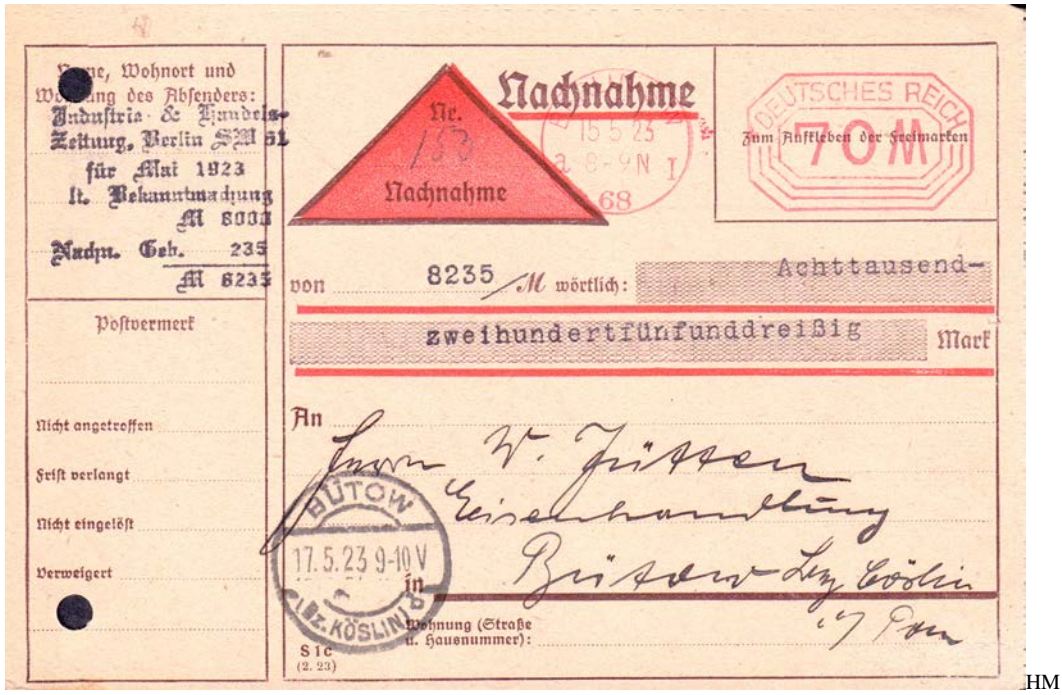 Name, Wohnort und
Wohnung des Absenders:
Industrie- & Handels-
Zeitung, Berlin SW 61
für Mai 1923
lt. Bekanntmachung
M 8000
Nachn. Geb. 235
M 8235
Postvermerk
Nicht angetroffen
Frist verlangt
Nicht eingelöst
Verweigert
Nr.
153
Nachnahme
Nachnahme
15 5 23
a 8-9 N I
68
DEUTSCHES REICH
70 M
Zum Aufkleben der Freimarken
von 8235 M wörtlich: Achttausend-
zweihundertfünfunddreißig Mark
An
Herrn W. Jütten
Eisenhandlung
in Bütow Bez Cöslin
i/ Pom
BÜTOW
17.5.23 9-10 V
(Bz. KÖSLIN)
Wohnung (Straße
u. Hausnummer):
S 1c
(2. 23)
HM